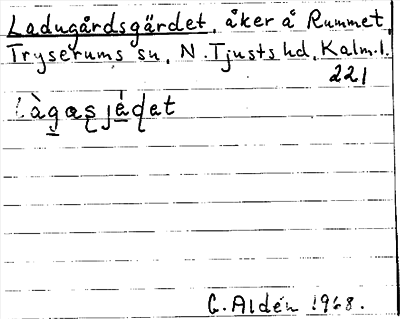 Ladugårdsgärdet, åker å Rummet,
Tryserums sn, N. Tjusts hd, Kalm.l.
221
Làgasjédet
G. Aldén 1968.